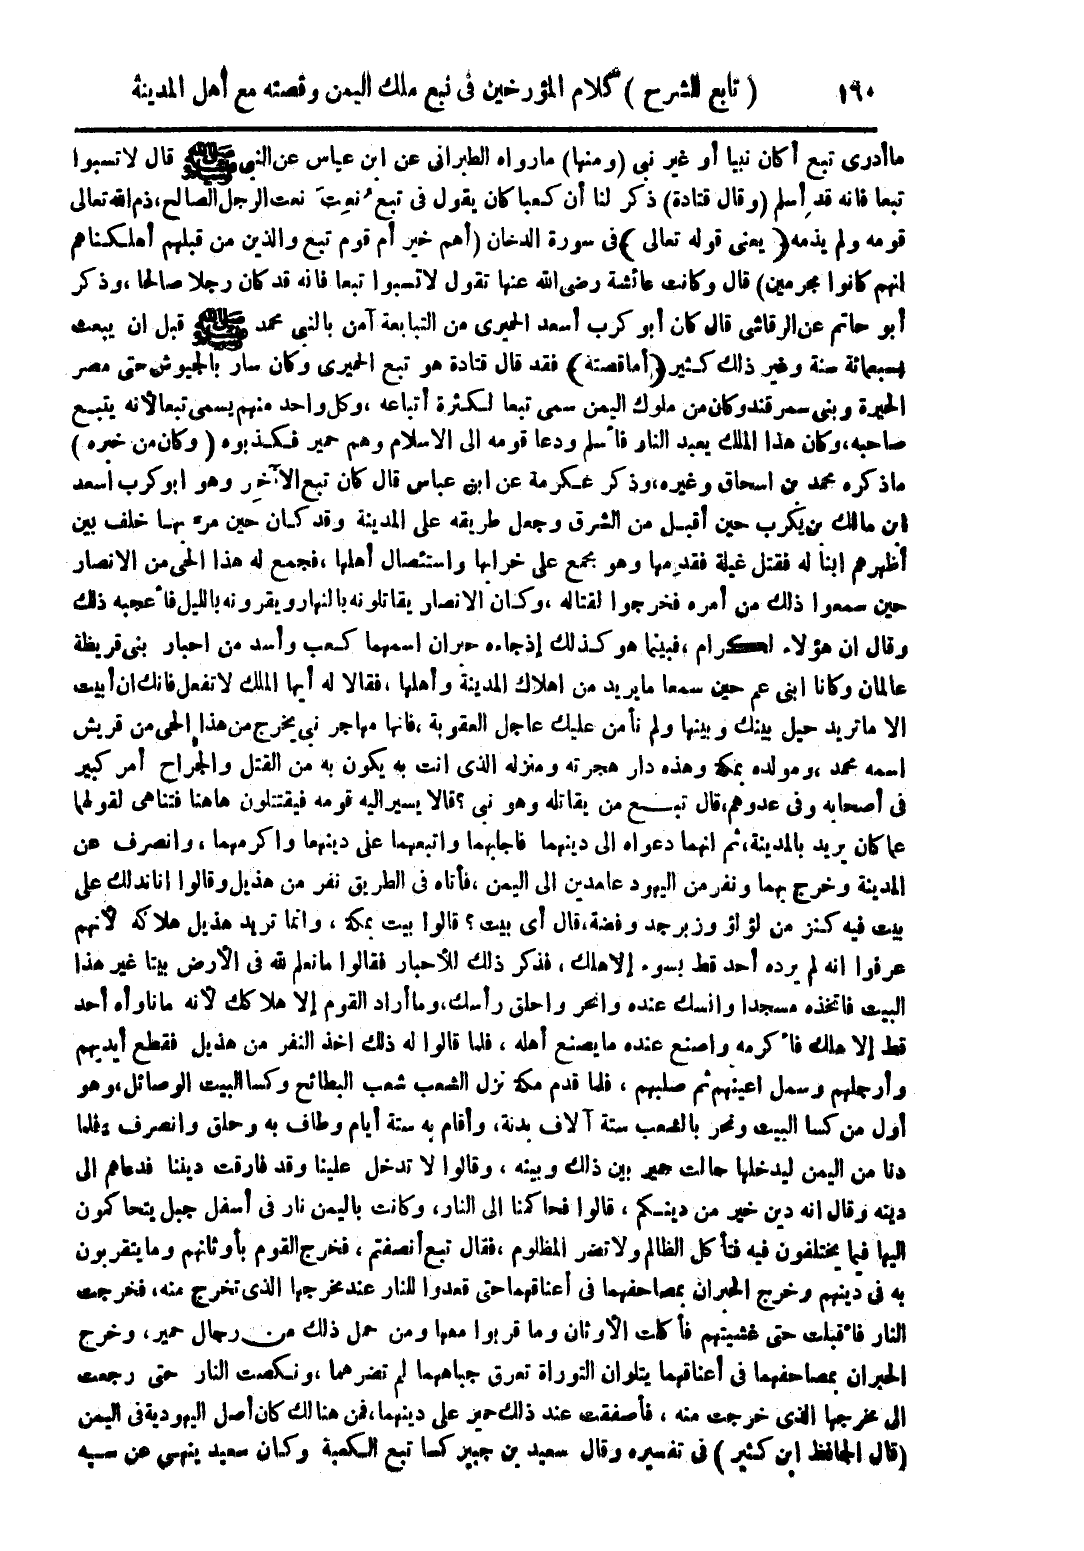 ١٩٠ ( تابع الشرح ) كلام المؤرخين فى تبع ملك اليمن وقصته مع أهل المدينة
ماأدرى تبع أكان نبيا أو غير نبى (ومنها) مارواه الطبرانى عن ابن عباس عن النبى ﷺ قال لاتسبوا
تبعا فانه قد أسلم (وقال قتادة) ذكر لنا أن كعبا كان يقول فى تبع نُعِتَ نعت الرجل الصالح، ذم الله تعالى
قومه ولم يذمه ( يعنى قوله تعالى ) فى سورة الدخان (أهم خير أم قوم تبع والذين من قبلهم أهلكناهم
انهم كانوا مجرمين) قال وكانت عائشة رضى الله عنها تقول لاتسبوا تبعا فانه قد كان رجلا صالحا ،وذكر
أبو حاتم عن الرقاشى قال كان أبو كرب أسعد الحميرى من التبابعة آمن بالنبى محمد ﷺ قبل ان يبعث
بسبعمائة سنة وغير ذلك كثير (أماقصته) فقد قال قتادة هو تبع الحميرى وكان سار بالجيوش حتى مصر
الحيرة وبنى سمرقند وكان من ملوك اليمن سمى تبعا لكثرة أتباعه ،وكل واحد منهم يسمى تبعا لأنه يتبع
صاحبه، وكان هذا الملك يعبد النار فأسلم ودعا قومه الى الاسلام وهم حمير فكذبوه ( وكان من خبره )
ماذكره محمد بن اسحاق وغيره، وذكر عكرمة عن ابن عباس قال كان تبع الآخر وهو ابوكرب اسعد
ابن مالك بن يكرب حين أقبل من الشرق وجعل طريقه على المدينة وقد كان حين مرّ بها خلف بين
أظهرهم ابنا له فقتل غيلة فقدمها وهو مجمع على خرابها واستئصال أهلها ،فجمع له هذا الحى من الانصار
حين سمعوا ذلك من أمره فخرجوا لقتاله ،وكان الانصار يقاتلونه بالنهار ويقرونه بالليل فأعجبه ذلك
وقال ان هؤلاء لكرام ،فبينما هو كذلك إذجاءه حبران اسمهما كعب وأسد من احبار بنى قريظة
عالمان وكانا ابنى عم حين سمعا مايريد من اهلاك المدينة وأهلها ،فقالا له أيها الملك لاتفعل فانك ان أبيت
الا ماتريد حيل بينك وبينها ولم نأمن عليك عاجل العقوبة ،فانها مهاجر نبى يخرج من هذا الحى من قريش
اسمه محمد ،ومولده بمكة وهذه دار هجرته ومنزله الذى انت به يكون به من القتل والجراح أمر كبير
فى أصحابه وفى عدوهم، قال تبع من يقاتله وهو نبى ؟ قالا يسير اليه قومه فيقتتلون هاهنا فتناهى لقولهما
عما كان يريد بالمدينة، ثم انهما دعواه الى دينهما فاجابهما واتبعهما على دينهما واكرمهما ، وانصرف عن
المدينة وخرج بهما ونفر من اليهود عامدين الى اليمن ،فأتاه فى الطريق نفر من هذيل وقالوا اناندلك على
بيت فيه كنز من لؤلؤ وزبرجد وفضة، قال أى بيت ؟ قالوا بيت بمكة ، وانما تريد هذيل هلاكه لأنهم
عرفوا انه لم يرده أحد قط بسوء إلاهلك ، فذكر ذلك للأحبار فقالوا مانعلم لله فى الأرض بيتا غير هذا
البيت فاتخذه مسجدا وانسك عنده وانحر واحلق رأسك، وماأراد القوم إلا هلاكك لأنه ماناوأه أحد
قط إلا هلك فأكرمه واصنع عنده مايصنع أهله ، فلما قالوا له ذلك اخذ النفر من هذيل فقطع أيديهم
وأرجلهم وسمل اعينهم ثم صلبهم ، فلما قدم مكة نزل الشعب شعب البطائح وكسا البيت الوصائل، وهو
أول من كسا البيت ونحر بالشعب ستة آلاف بدنة، وأقام به ستة أيام وطاف به وحلق وانصرف ، فلما
دنا من اليمن ليدخلها حالت حمير بين ذلك وبينه ، وقالوا لا تدخل علينا وقد فارقت ديننا فدعاهم الى
دينه وقال انه دين خير من دينكم ، قالوا فحاكمنا الى النار، وكانت باليمن نار فى أسفل جبل يتحاكمون
اليها فيما يختلفون فيه فتأكل الظالم ولاتضر المظلوم ،فقال تبع أنصفتم ، فخرج القوم بأوثانهم ومايتقربون
به فى دينهم وخرج الحبران بمصاحفهما فى أعناقهما حتى قعدوا للنار عند مخرجها الذى تخرج منه، فخرجت
النار فأقبلت حتى غشيتهم فأكلت الأوثان وما قربوا معها ومن حمل ذلك من رجال حمير، وخرج
الحبران بمصاحفهما فى أعناقهما يتلوان التوراة تعرق جباههما لم تضرهما ،ونكصت النار حتى رجعت
الى مخرجها الذى خرجت منه ، فأصفقت عند ذلك حمير على دينهما، فمن هنالك كان أصل اليهودية فى اليمن
(قال الحافظ ابن كثير ) فى تفسيره وقال سعيد بن جبير كسا تبع الكعبة وكان سعيد ينهى عن سبه